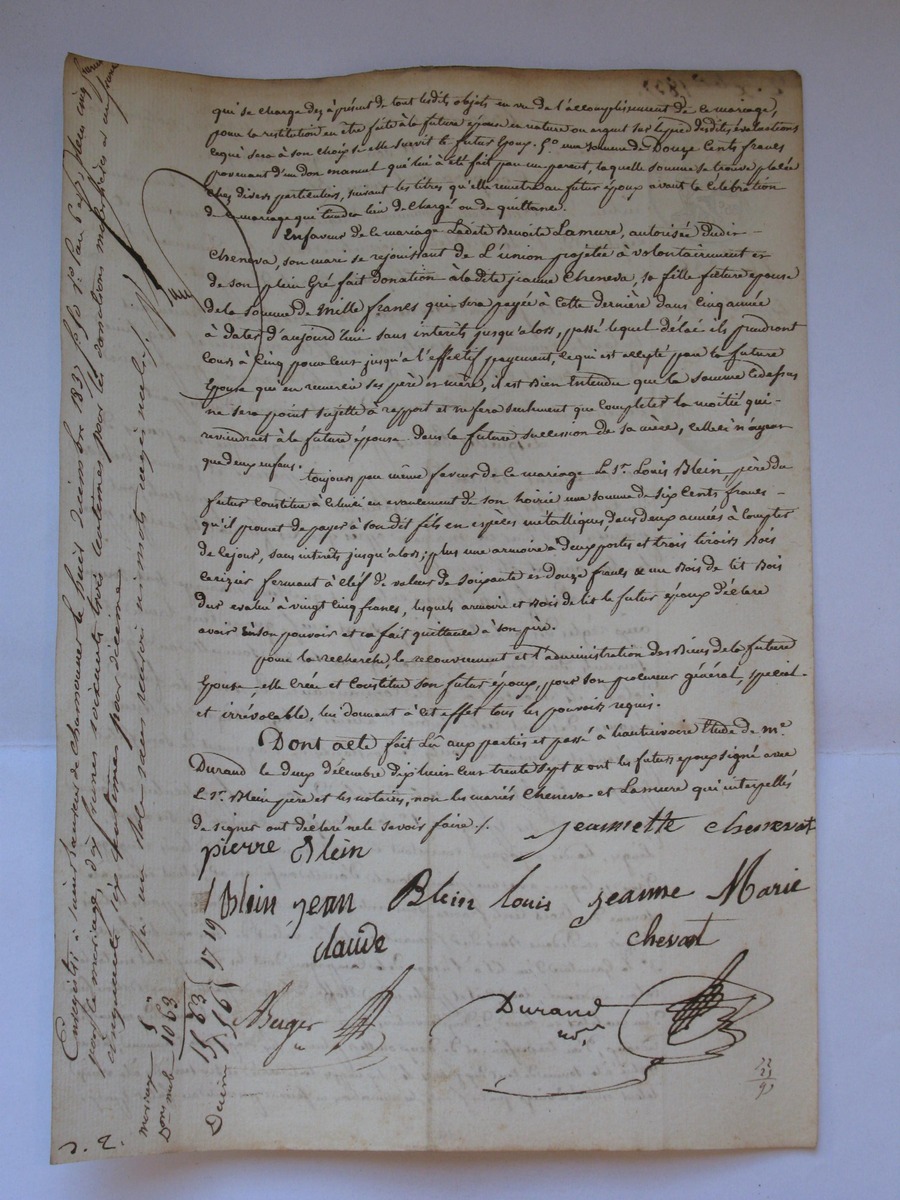 qui se charge dès à présent de tout lesdits objets en vue de l'accomplissement de ce mariage,
pour la restitution en être faite à la future épouse en nature ou argent sur le pied desdites évaluations
ce qui sera à son choix si elle survit le futur époux. 5.° une somme de Douze Cents francs
provenant d'un don manuel qui lui a été fait par un parent, laquelle somme se trouve placée
chez divers particuliers, suivant les titres qu'elle remettra au futur époux avant la célébration
de ce mariage qui tiendra lieu de chargé ou de quittance.
En faveur de ce mariage Ladite Benoite Lamure, autorisée dudit
Cheneva, son mari se rejouissant de L'union projetée à volontairement et
de son plein Gré fait Donation à ladite jeanne Cheneva, sa fille future épouse
de la somme de Mille francs qui sera payée à cette dernière dans cinq année
à dater d'aujourd'hui sans interêts jusqu'alors, passé lequel délai ils prendront
cours à cinq pour cent jusqu'à l'effectif payement, ce qui est accepté par la future
Epouse qui en remercie ses père et mère, il est Bien Entendu que la somme cidessus
ne sera point sujette à rapport et ne fera seulement que completter la moitié qui
reviendrait à la future épouse dans la future succession de sa mère, celle-ci n'ayant
que deux enfans.
toujours par même faveur de ce mariage Le S.r Louis Blein, père du
futur Constitue à celui ci en avancement de son hoirie une somme de six Cents francs
qu'il promet de payer à son dit fils en espèces métalliques, dans deux années à compter
de ce jour, sans intérêts jusqu'alors; plus une armoire à deux portes et trois tiroirs Bois
cerizier fermant à cléf de valeur de soixante et douze francs & un Bois de lit Bois
dur évalué à vingt cinq francs, lesquels armoire et Bois de lit le futur époux déclare
avoir En son pouvoir et en fait quittance à son père.
pour la recherche, le recouvrement et l'administration des Biens de la future
Epouse elle Crée et Constitue son futur époux, pour son procureur général, spécial
et irrévocable, lui donnant à cet effet tous les pouvoirs requis.
Dont acte fait Lû aux parties et passé à hauterivoire Etude de M.e
Durand le deux décembre dix huit cent trente sept & ont les futurs époux signé avec
le S.r Blein père et les notaires, non les mariés Cheneva et Lamure qui interpellés
de signer ont déclaré ne le savoir faire ./.
Jeannette chenevat
pierre Blein
Blein jean Blein louis jeanne Marie
claude chevat
Durand
no.re
Enregistré à saint Laurent de chamousset le huit décembre 1837
pour le mariage, dix francs soixante trois centimes pour les donations mobilières et un franc
cinquante six centimes pour décime
mariage 5 "
Don mob 10 63
15 63
1 56
17 19